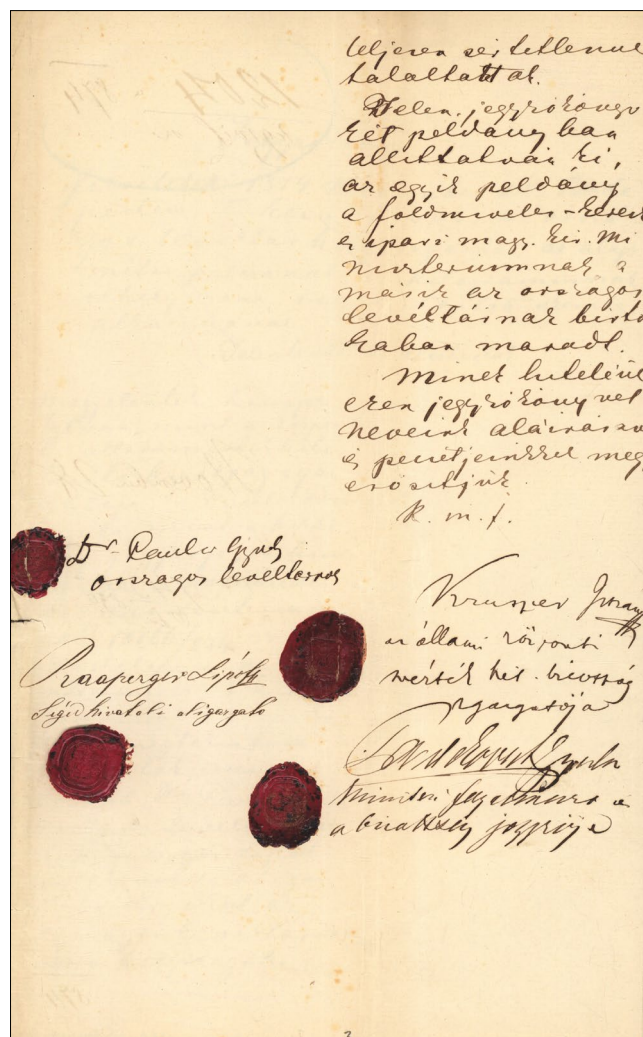 teljesen sértetlenül
találtattak.
Jelen jegyzőkönyv
két példányban
állíttatván ki,
az egyik példány
a földmivelés-keresk
és ipari magy. kir. Mi
niszteriumnak a
másik az országos
levéltárnak birto
kában maradt.
Minek hiteléül
ezen jegyzőkönyvet
neveink aláirásáv
és pecsétjeinkkel meg
erősítjük.
K. m. f.
Dr. Pauler Gyula
országos levéltárnok
Kruspér István
az állami központi
mérték hit. bizottság
igazgatója
Raasperger Lipót
Segéd hivatali aligazgató
Gyula
a bizottság jegyzője